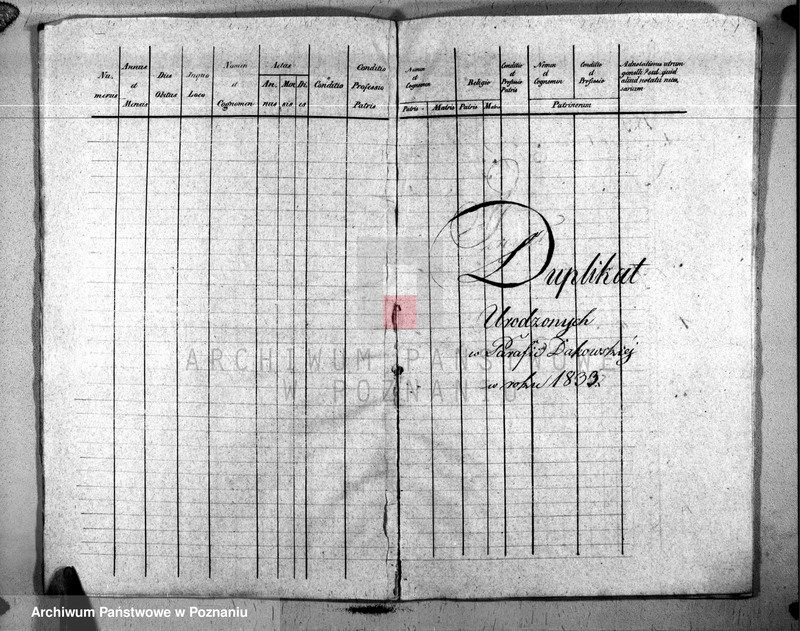 Nu-
merus
Annus
et
Mensis
Dies
Obitus
In quo
Loco
Nomen
et
Cognomen
Aetas
An-
nus
Men-
sis
Di-
es
Conditio
Conditio
Professio
Patris
Nomen
et
Cognomen
Patris
Matris
Religio
Patris
Mat-
Conditio
et
Professio
Patris
Nomen
et
Cognomen
Conditio
et
Professio
Patrinorum
Adnotationes utrum
gemelli? sed. quid
aliud notatu neces-
sarium
Duplikat
Urodzonych
w Parafii Dakowskiej
w roku 1833.
ARCHIWUM PAŃSTWOWE
W POZNANIU
Archiwum Państwowe w Poznaniu